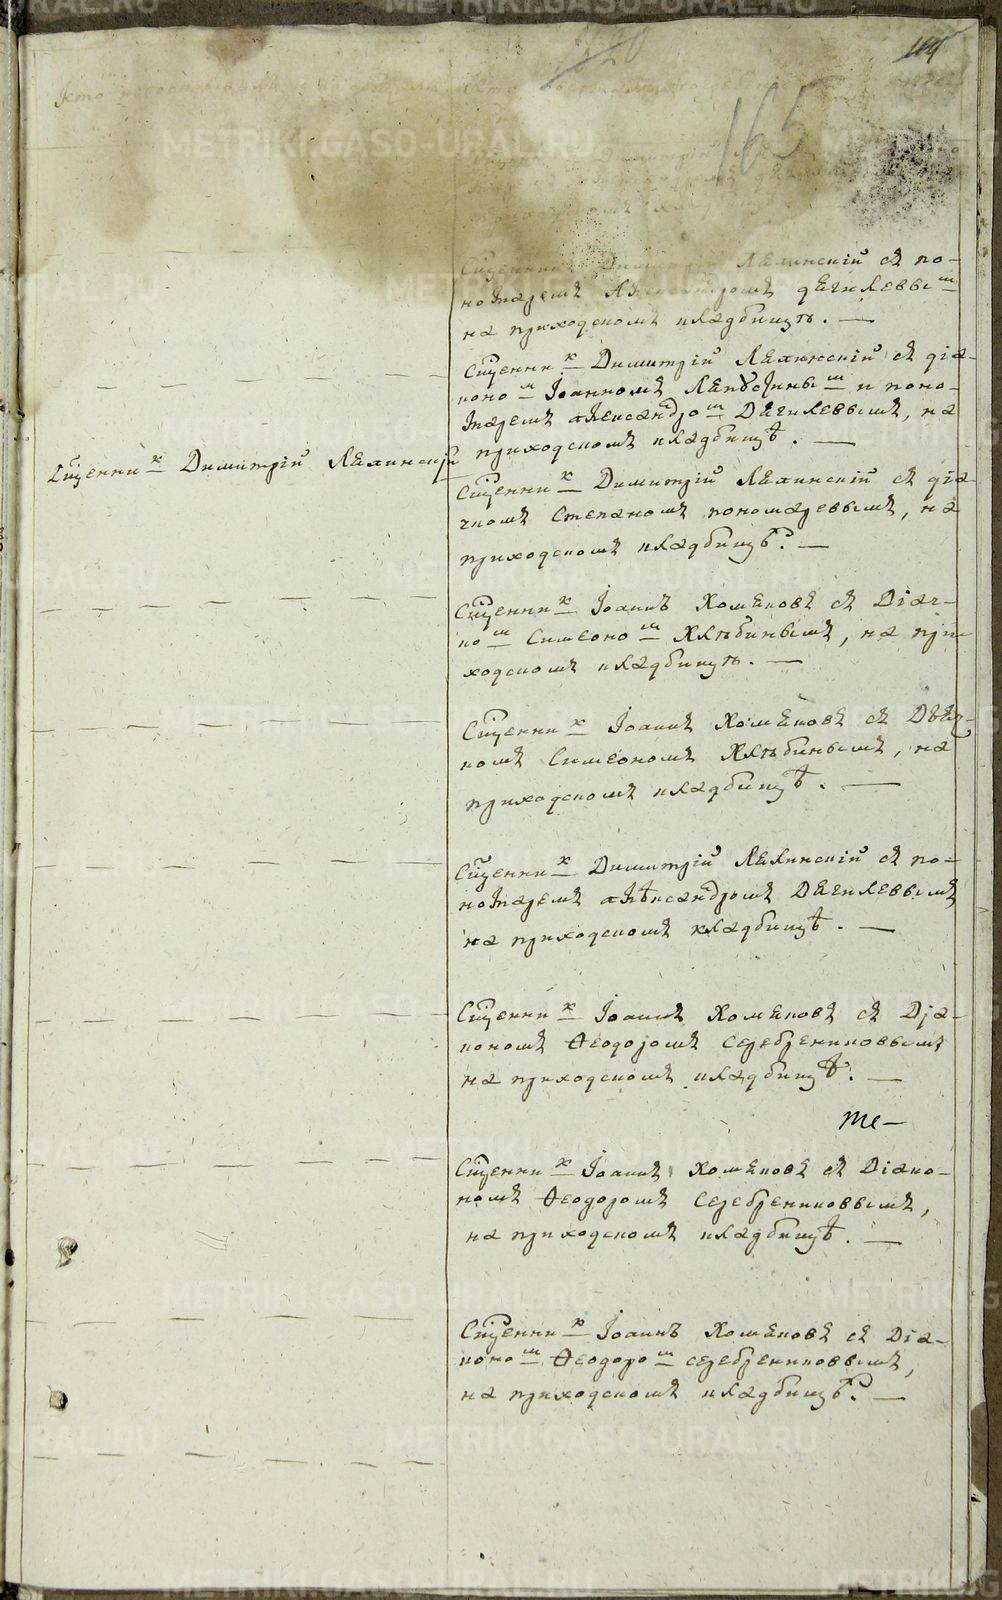 165
Кто исповѣдывалъ
Священник Димитрій Ляпинскій съ по-
номаремъ Александромъ Дягилевым
на приходскомъ кладбищѣ. —
Священник Димитрій Ляпинскій съ діа-
коном Іоанномъ и поно-
маремъ Александром Дягилевымъ, на
приходскомъ кладбищѣ. —
Священник Димитрій Ляпинскій
Священник Димитрій Ляпинскій съ дья
чкомъ Степаномъ Пономаревымъ, на
приходскомъ кладбищѣ. —
Священник Іоаннъ Хомяковъ съ Діач-
ком Симеоном Хлѣбинымъ, на при-
ходскомъ кладбищѣ. —
Священник Іоаннъ Хомяковъ съ Дьяч-
комъ Симеономъ Хлѣбинымъ, на
приходскомъ кладбищѣ. —
Священник Димитрій Ляпинскій съ по-
номаремъ Алѣксандромъ Дягилевымъ
на приходскомъ кладбищѣ. —
Священник Іоаннъ Хомяковъ съ Діа-
кономъ Ѳеодоромъ Серебрениковымъ
на приходскомъ кладбищѣ. —
Священник Іоаннъ Хомяковъ съ Діако-
номъ Ѳеодоромъ Серебрениковымъ,
на приходскомъ кладбищѣ. —
Священник Іоаннъ Хомяковъ съ Діа-
коном Ѳеодором Серебрениковымъ,
на приходскомъ кладбищѣ. —
METRIKI.GASO-URAL.RU